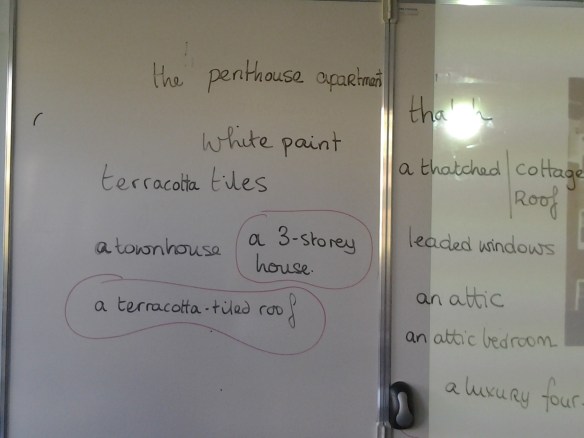 the penthouse apartment
white paint
terracotta tiles
a townhouse
a 3-storey
house.
a terracotta-tiled roof
thatch
a thatched | cottage
Roof
leaded windows
an attic
an attic bedroom
a luxury four.